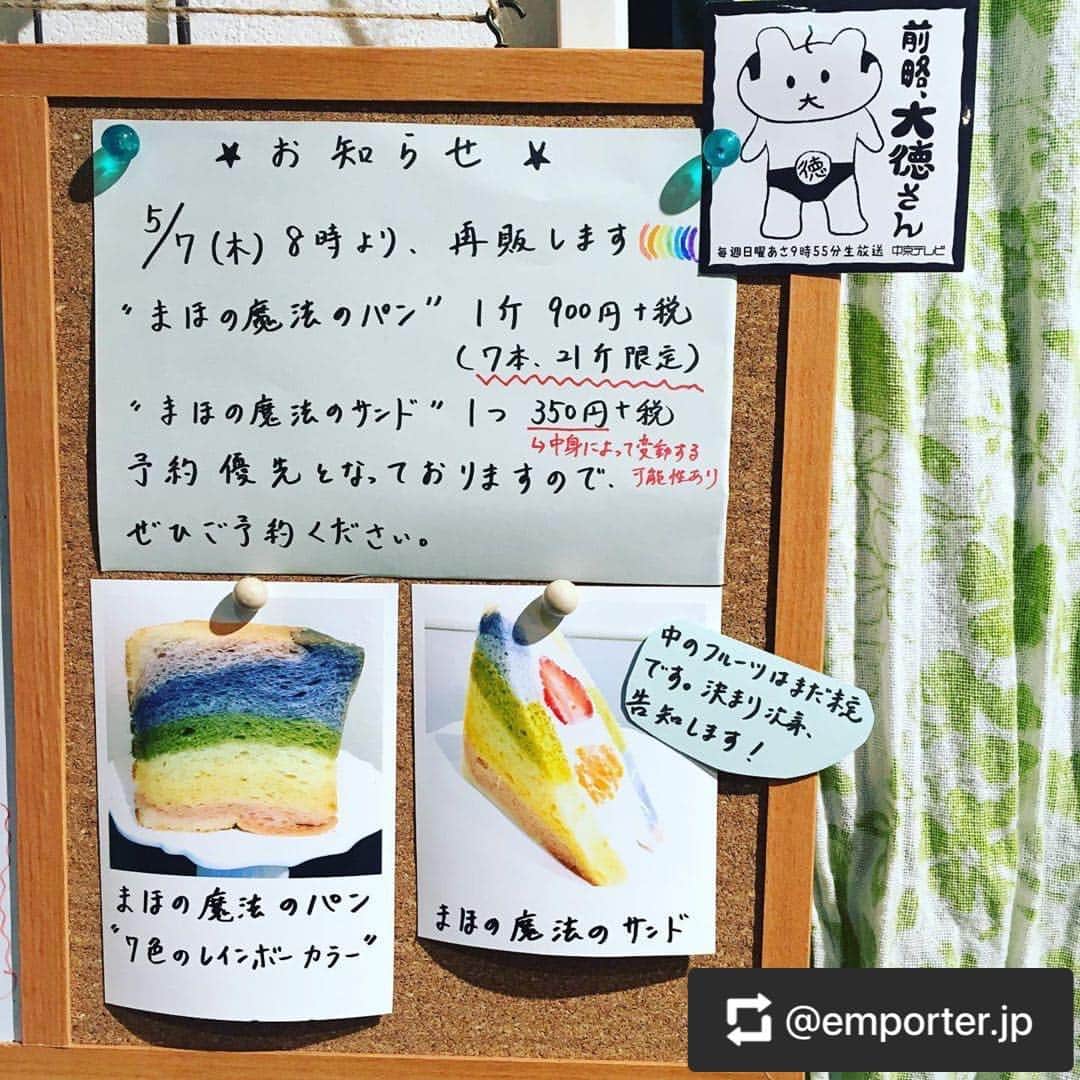 ★ お知らせ ★
5/7(木) 8時より、再販します
"まほの魔法のパン" 1斤 900円+税
(7本、21斤限定)
"まほの魔法のサンド" 1つ 350円+税
↳中身によって変動する
可能性あり
予約優先となっておりますので、
ぜひご予約ください。
前略、大徳さん
大
徳
毎週日曜あさ9時55分生放送 中京テレビ
中のフルーツはまだ未定
です。決まり次第、
告知します!
まほの魔法のパン
"7色のレインボーカラー"
まほの魔法のサンド
@emporter.jp